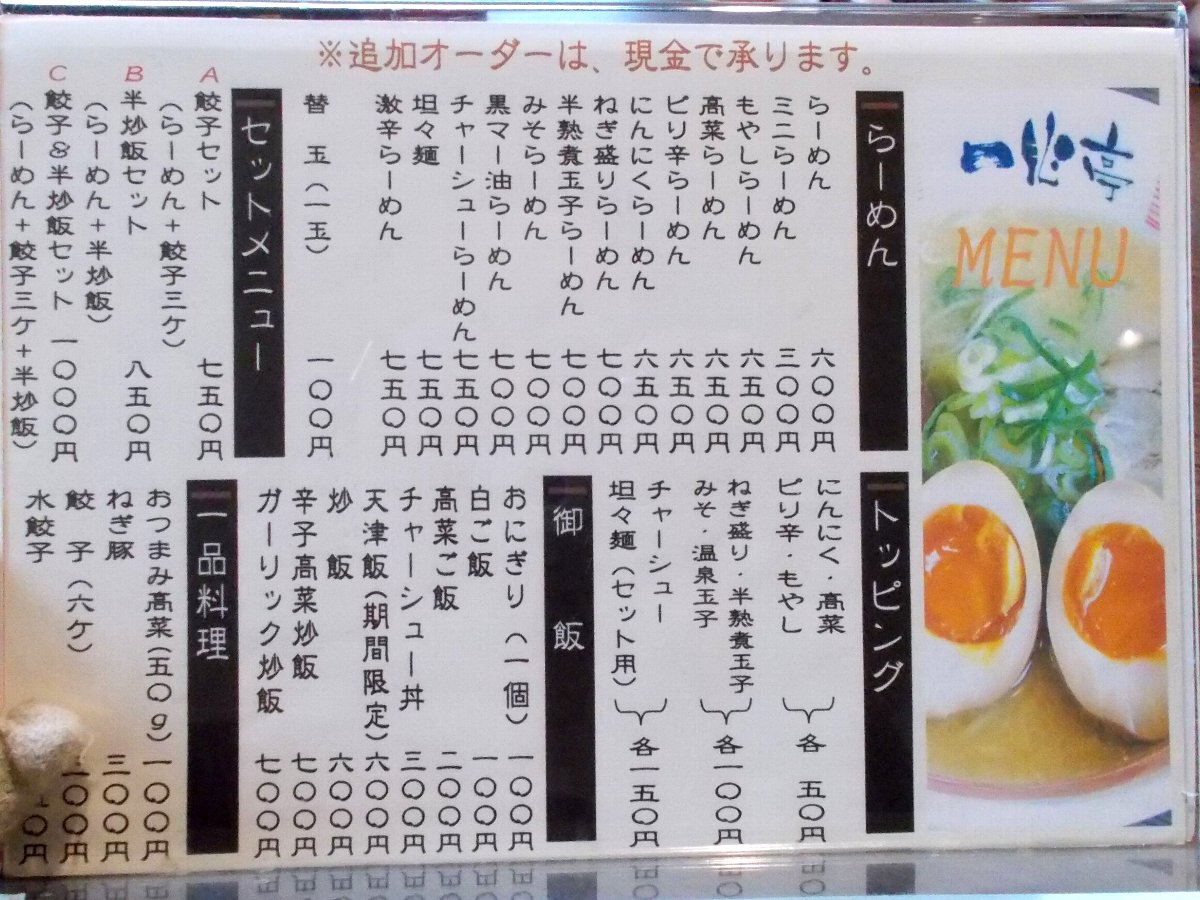 ※追加オーダーは、現金で承ります。
MENU
らーめん
らーめん 六〇〇円
ミニらーめん 三〇〇円
もやしらーめん 六五〇円
高菜らーめん 六五〇円
ピリ辛らーめん 六五〇円
にんにくらーめん 六五〇円
ねぎ盛りらーめん 七〇〇円
半熟煮玉子らーめん 七〇〇円
みそらーめん 七〇〇円
黒マー油らーめん 七〇〇円
チャーシューらーめん 七五〇円
坦々麺 七五〇円
激辛らーめん 七五〇円
替 玉(一玉) 一〇〇円
セットメニュー
A 餃子セット 七五〇円
(らーめん+餃子三ケ)
B 半炒飯セット 八五〇円
(らーめん+半炒飯)
C 餃子&半炒飯セット 一〇〇〇円
(らーめん+餃子三ケ+半炒飯)
トッピング
にんにく・高菜
ピリ辛・もやし
各 五〇円
ねぎ盛り・半熟煮玉子
みそ・温泉玉子
各一〇〇円
チャーシュー
坦々麺(セット用)
各一五〇円
御 飯
おにぎり(一個) 一〇〇円
白ご飯 一〇〇円
高菜ご飯 二〇〇円
チャーシュー丼 三〇〇円
天津飯(期間限定) 六〇〇円
炒 飯 六〇〇円
辛子高菜炒飯 七〇〇円
ガーリック炒飯 七〇〇円
一品料理
おつまみ高菜(五〇g) 一〇〇円
ねぎ豚 三〇〇円
餃 子(六ケ) 〇〇円
水餃子 〇円